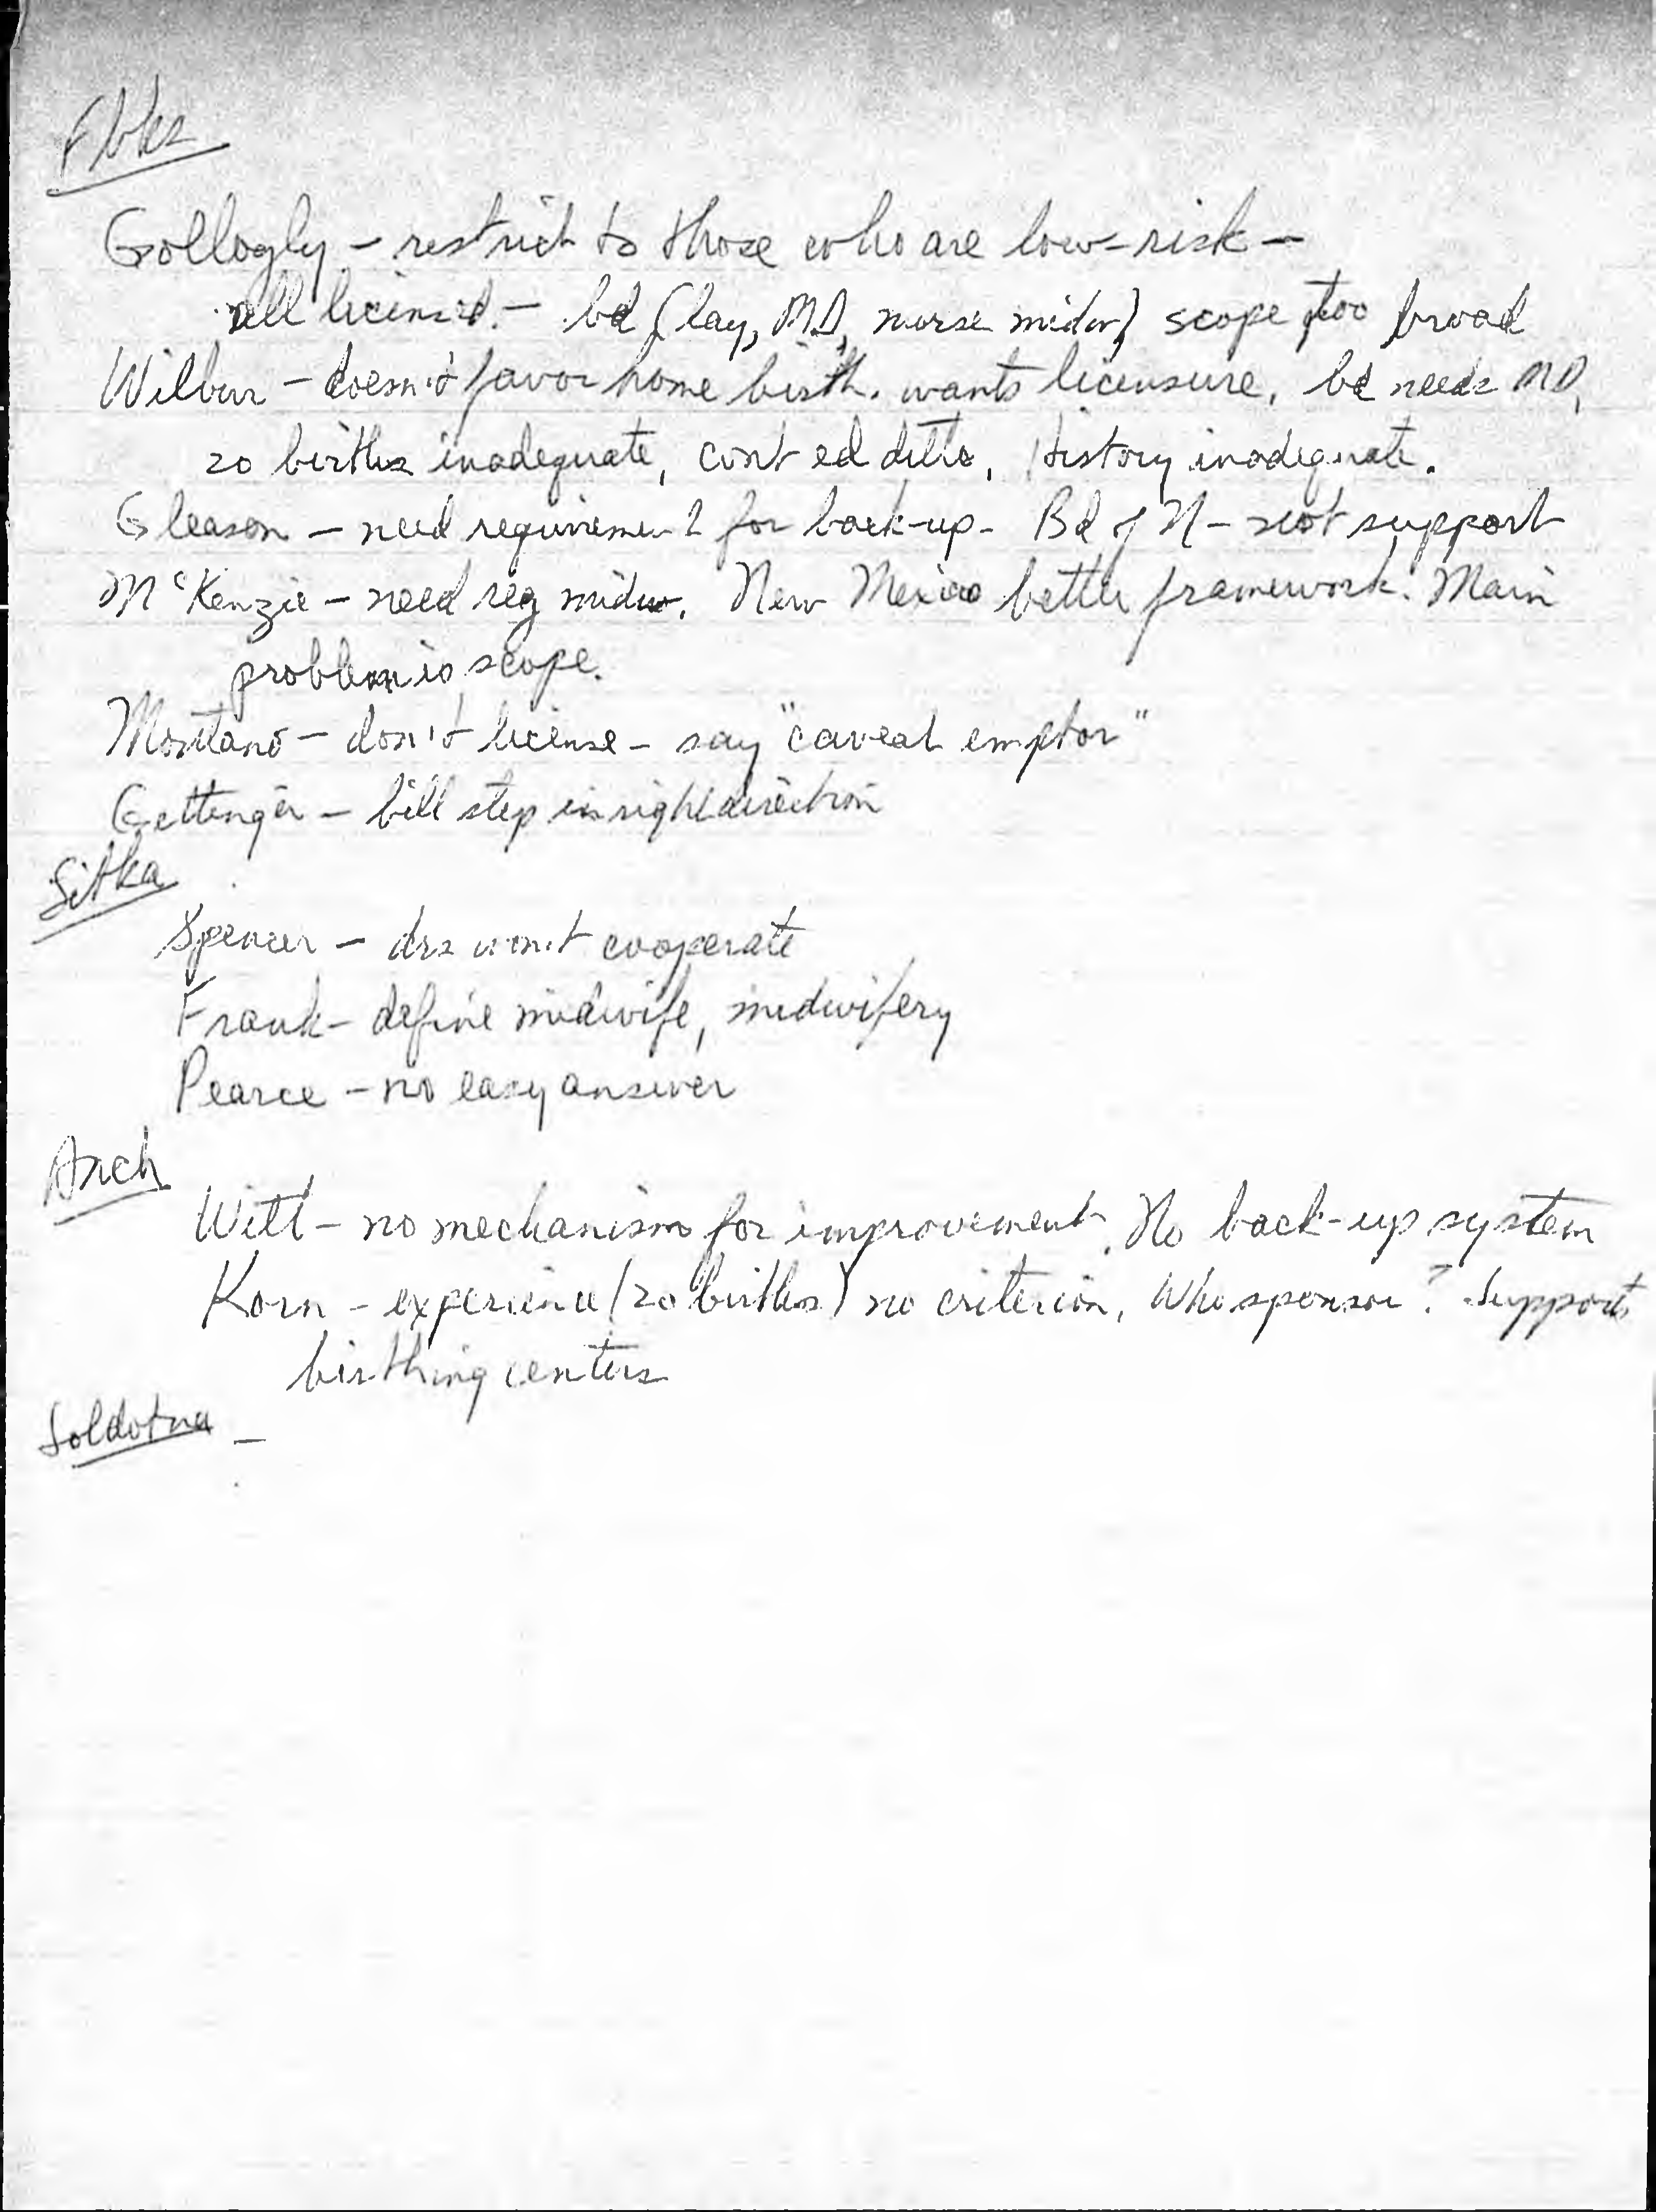 Fbks
Gollogly - restrict to those who are low-risk -
all licensed. - bd (lay, MD, nurse midw) scope too broad
Wilbur - doesn't favor home birth. wants licensure. bd needs MD,
20 births inadequate, cont ed ditto, History inadequate.
Gleason - need requirement for back-up - Bd of N - not support
McKenzie - need reg midw. New Mexico better framework. Main
problem is scope.
Montano - don't license - say "caveat emptor"
Gettinger - bill step in right direction
Sitka
Spencer - drs won't cooperate
Frank - define midwife, midwifery
Pearce - no easy answer
Anch
Witt - no mechanism for improvement. No back-up system
Korn - experience (20 births) no criterion, Who sponsor? Supports
birthing centers
Soldotna -